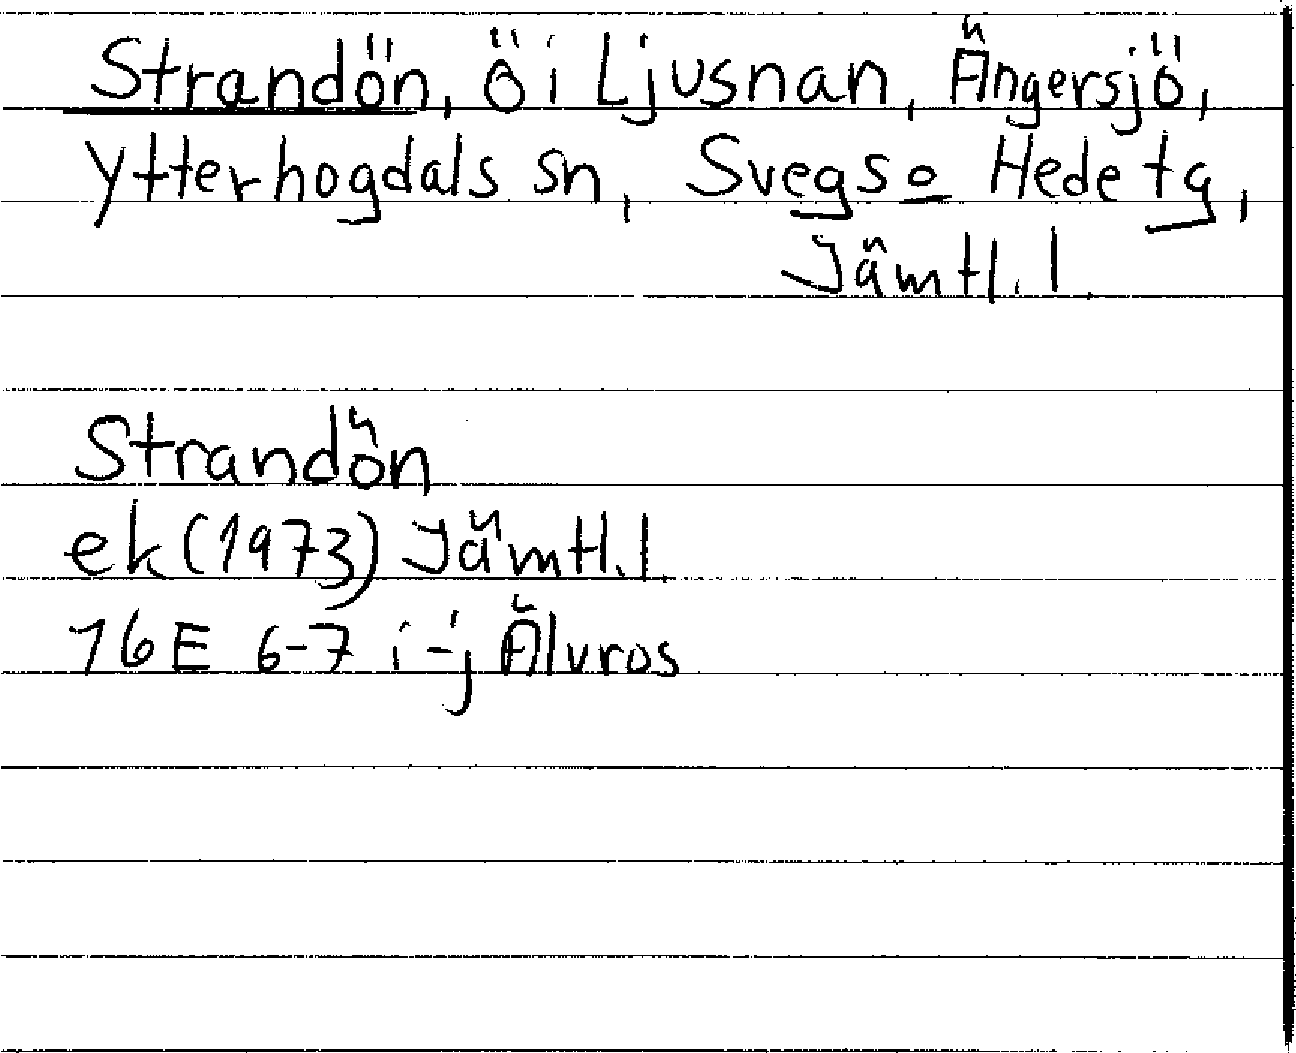 Strandön, ö i Ljusnan, Ängersjö,
Ytterhogdals sn, Svegs o Hede tg,
Jämtl. l.
Strandön
ek (1973) Jämtl. l.
16E 6-7 i-j Älvros